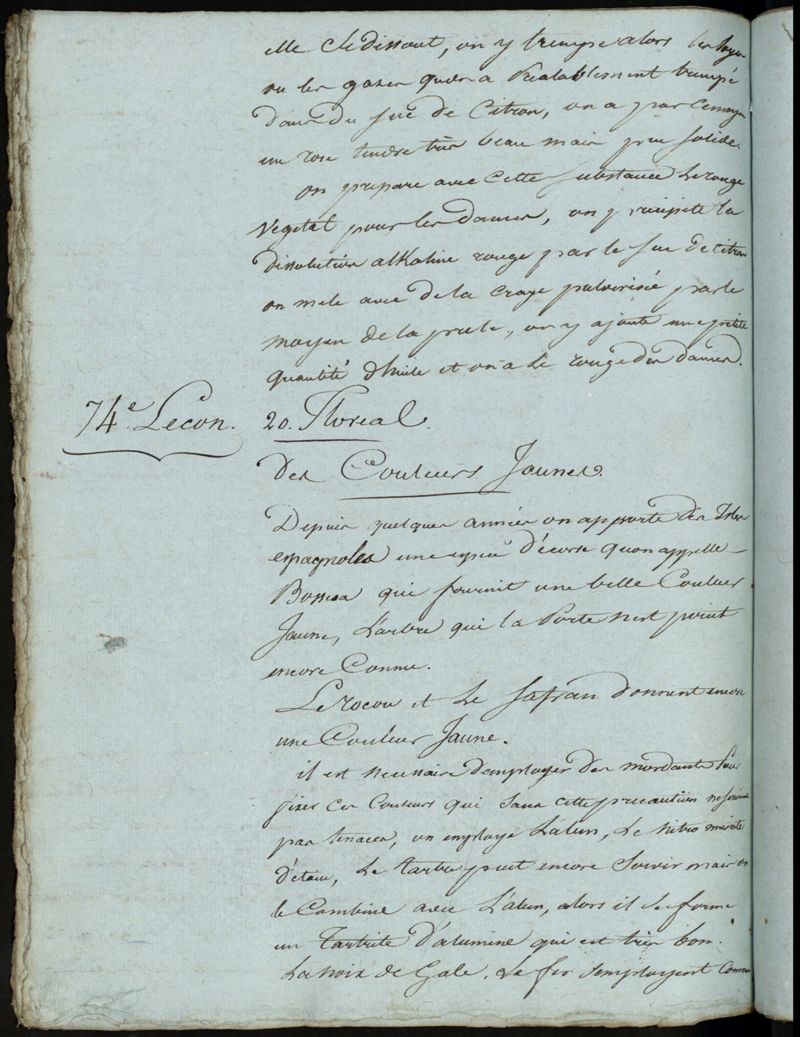 elle se dissout, on y trempe alors les soyes
ou les gazes qu'on a préalablement trempé
dans du suc de Citron, on a par ce moyen
un rose tendre très beau mais peu solide.
on prepare avec Cette substance Le rouge
Vegetal pour les dames, on precipite la
dissolution alkaline rouge par le suc de citron
on mele avec de la craye pulverisée par le
moyen de la prele, on y ajoute une petite
quantité d'huile et on a Le rouge des dames.
74e. Lecon. 20. Floreal.
des Couleurs Jaunes.
Depuis quelques années on apporte des Isles
espagnoles une espece d'écorse quon appelle
qui fournit une belle Couleur
Jaune, L'arbre qui la Porte n'est point
encore Connu.
Le rocou et Le safran donnent encore
une Couleur Jaune.
il est necessaire d'employer des mordants pour
fixer ces Couleurs qui sans cette precaution ne seroient
pas tenaces, on employe L'alun, Le nitro muriate
d'étain, Le tartre peut encore servir mais on
le Combine avec L'alun, alors il se forme
un Tartrite d'alumine qui est très bon.
La noix de Gale, Le fer s'employent Comme